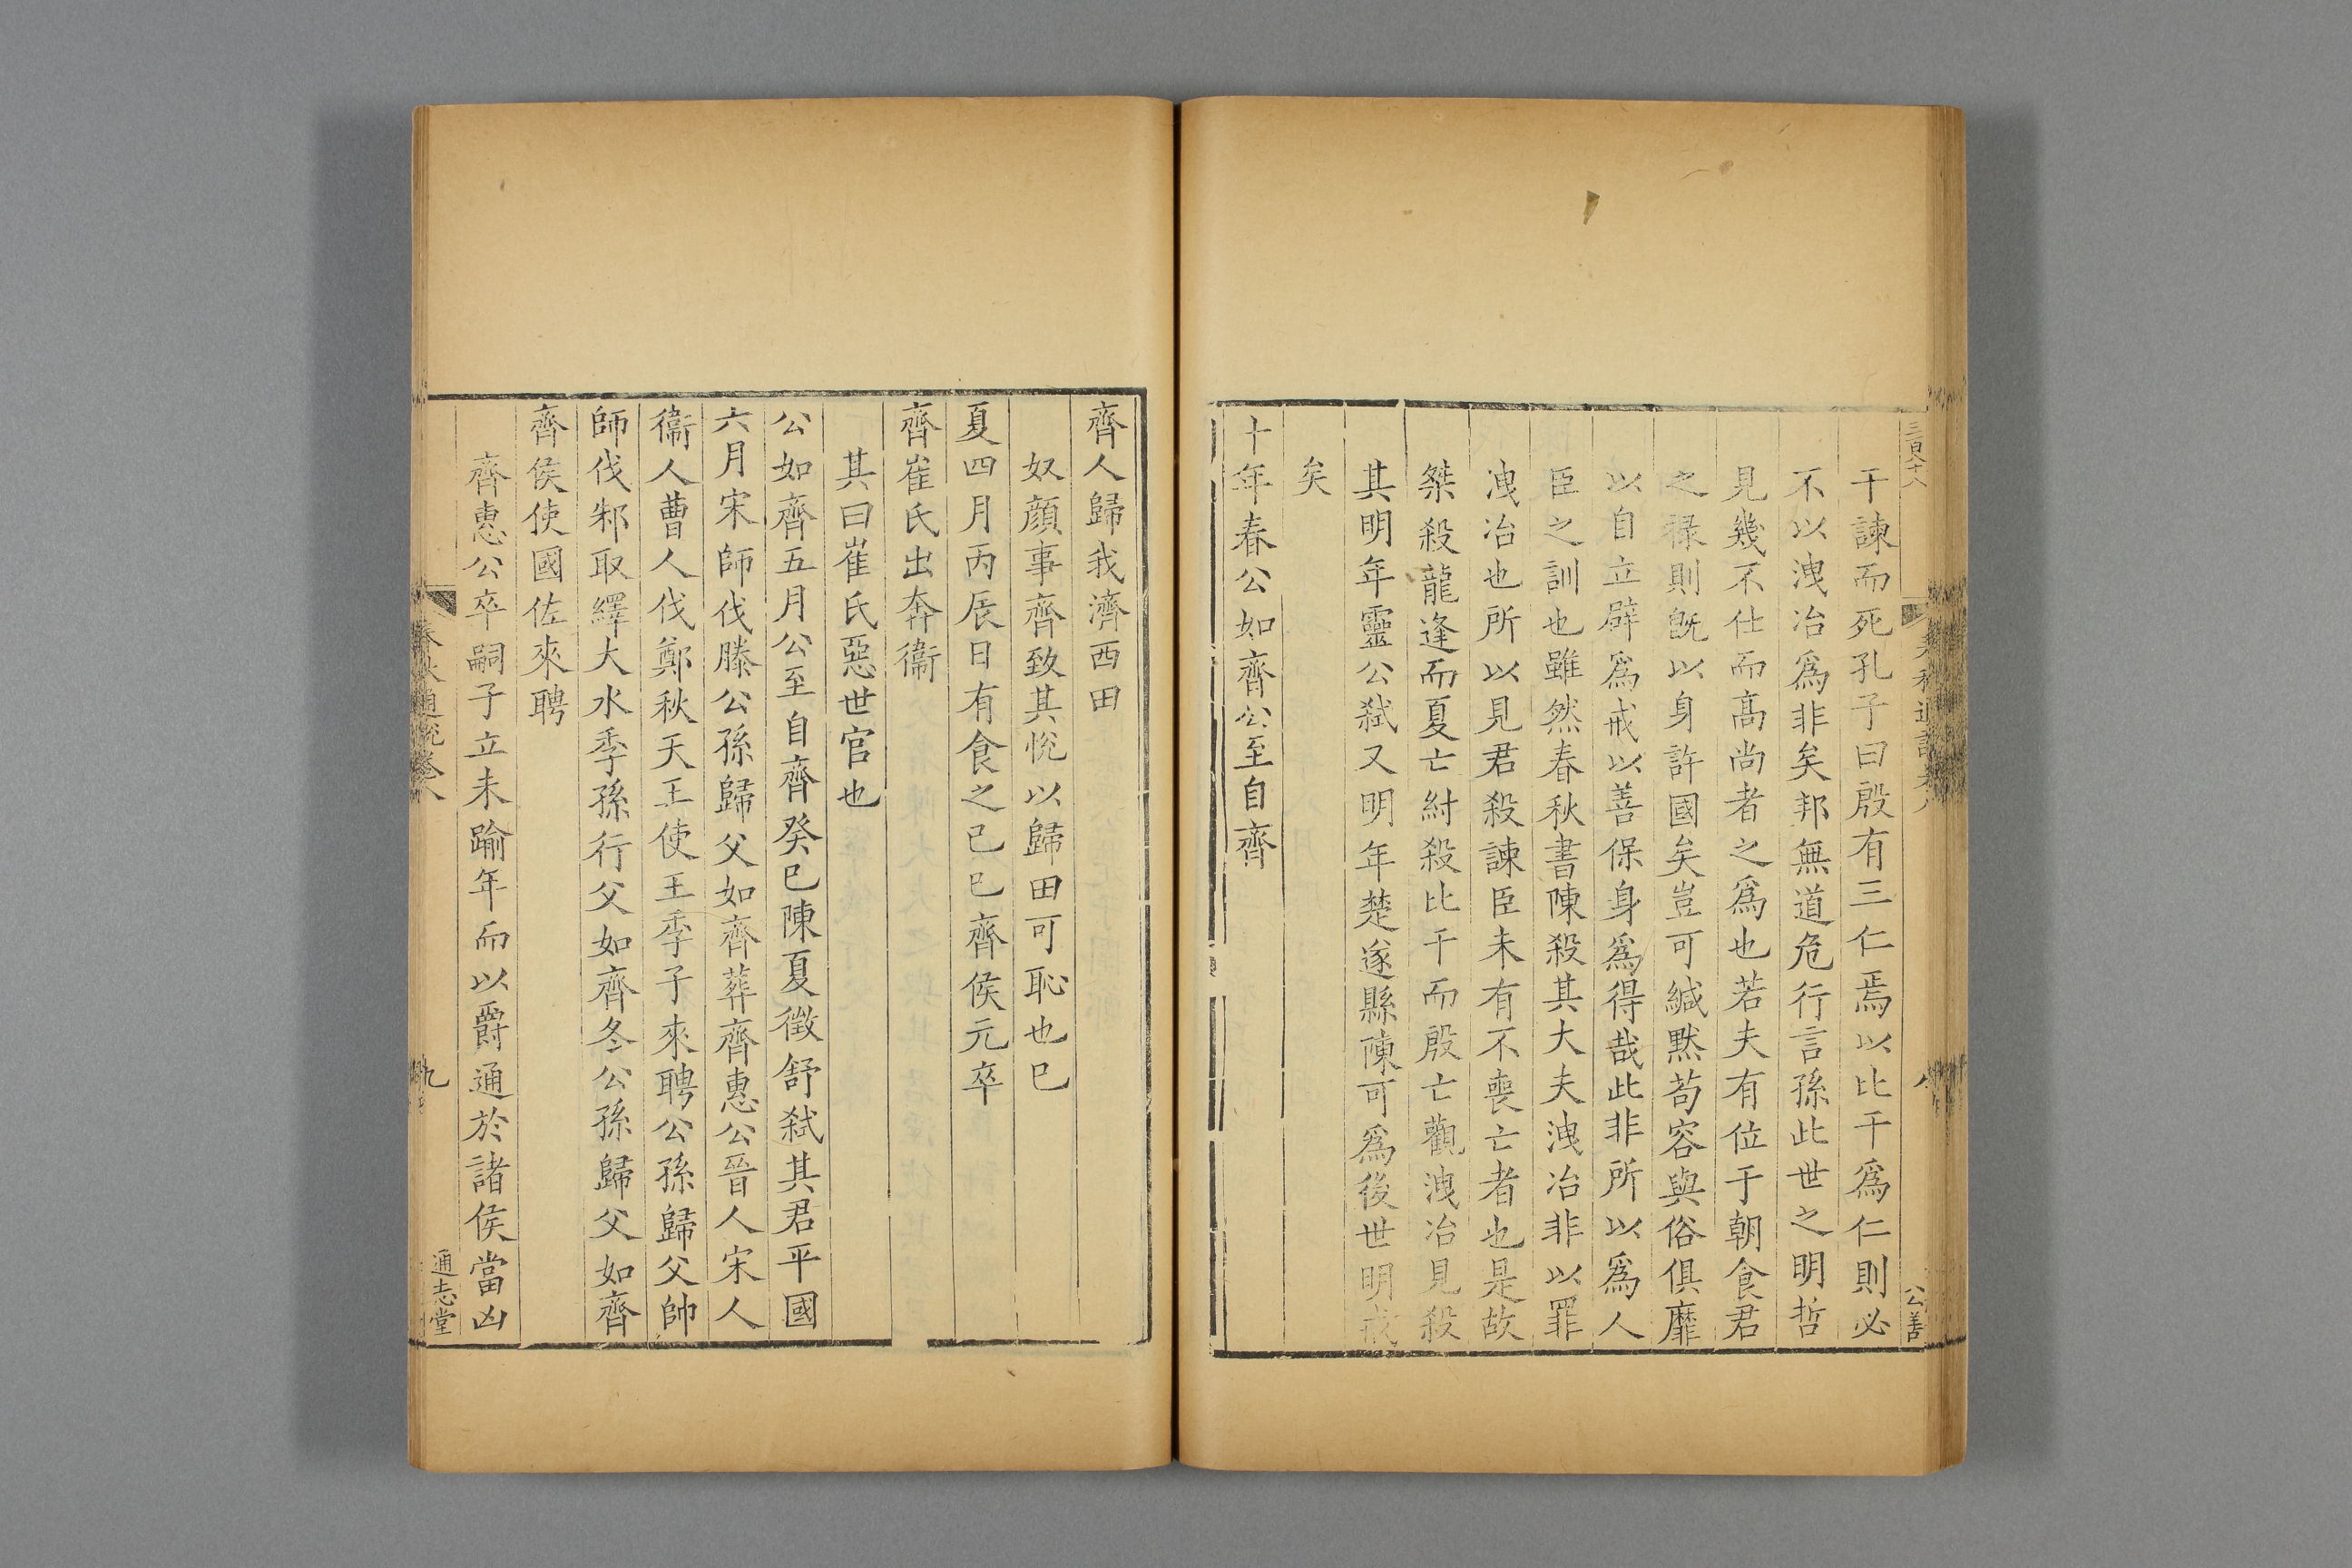 三百十八
春秋通說卷八
八
公善
干諫而死孔子曰殷有三仁焉以比干爲仁則必
不以洩冶爲非矣邦無道危行言孫此世之明哲
見幾不仕而高尚者之爲也若夫有位于朝食君
之祿則旣以身許國矣豈可緘黙苟容與俗俱靡
以自立辟爲戒以善保身爲得哉此非所以爲人
臣之訓也雖然春秋書陳殺其大夫洩冶非以罪
洩冶也所以見君殺諫臣未有不喪亡者也是故
桀殺龍逢而夏亡紂殺比干而殷亡觀洩冶見殺
其明年靈公弑又明年楚遂縣陳可爲後世明戒
矣
十年春公如齊公至自齊
齊人歸我濟西田
奴顔事齊致其悅以歸田可恥也已
夏四月丙辰日有食之已巳齊侯元卒
齊崔氏出奔衞
其曰崔氏惡世官也
公如齊五月公至自齊癸巳陳夏徵舒弑其君平國
六月宋師伐滕公孫歸父如齊葬齊惠公晉人宋人
衞人曹人伐鄭秋天王使王季子來聘公孫歸父帥
師伐邾取繹大水季孫行父如齊冬公孫歸父如齊
齊侯使國佐來聘
齊惠公卒嗣子立未踰年而以爵通於諸侯當凶
春秋通說卷八
九
通志堂